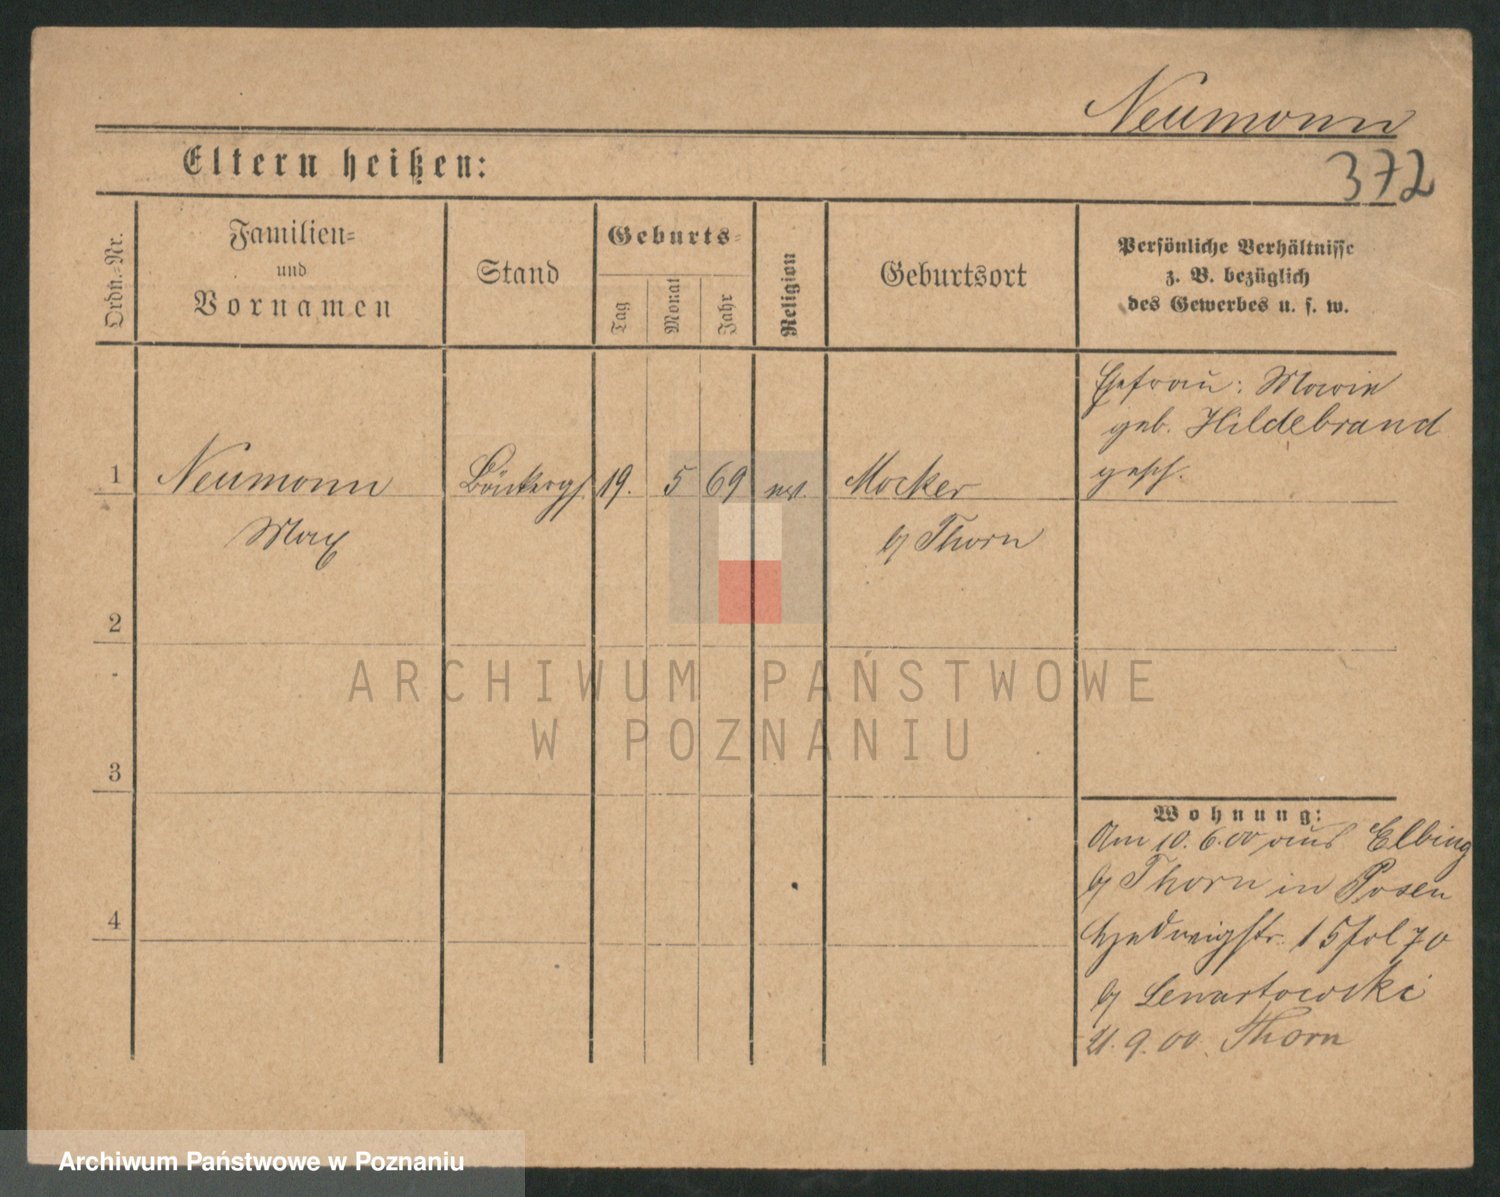 Neumann
372
Eltern heißen:
Ordn.=Nr.
Familien=
und
Vornamen
Stand
Geburts=
Tag
Monat
Jahr
Religion
Geburtsort
Persönliche Verhältnisse
z. B. bezüglich
des Gewerbes u. s. w.
Ehefrau: Marie
geb. Hildebrand
gesch.
1 Neumann Bäckerges. 19. 5 69 Mocker
Max b/ Thorn
2
ARCHIWUM PAŃSTWOWE
W POZNANIU
3
Wohnung:
Am 10. 6. 00 aus Elbing
b/ Thorn in Posen
Hedwigstr. 15
4
b/ Lenartowski
9. 00. Thorn
Archiwum Państwowe w Poznaniu